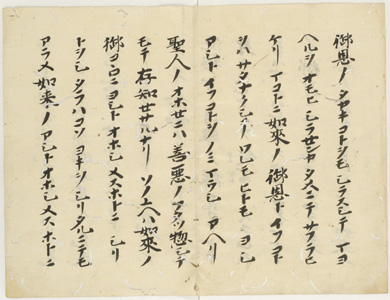 御恩ノタカキコトヲモシラスシテマヨ
ヘルヲオモヒシラセンカタメニテサフラヒ
ケリマコトニ如來ノ御恩トイフコト
ヲハサタナクシテワレモヒトモヨシ
アシトイフコトヲノミマウシアヘリ
聖人ノオホセニハ善悪ノフタツ惣シテ
モテ存知セサルナリソノユヘハ如來ノ
御コヽロニヨシトオホシメスホトニシリ
トヲシタラハコソヨキヲシリタルニテモ
アラメ如來ノアシトオホシメスホトニ